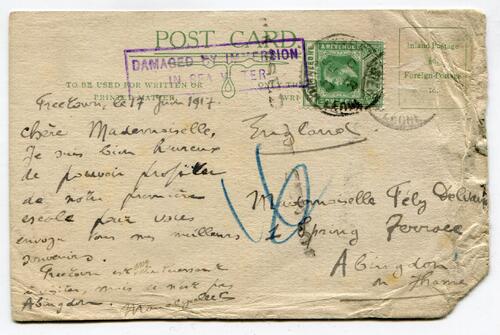 POST CARD
DAMAGED BY IMMERSION
IN SEA WATER.
& REVENUE
Inland Postage
Foreign Postage
TO BE USED FOR WRITTEN OR
PRINTED MATTER
Freetown, le 17 Juin 1917.
England
Chère Mademoiselle,
Je suis bien heureux
de pouvoir profiter
de notre première
escale pour vous
envoyer tous nos meilleurs
souvenirs.
Freetown est intéressant
à visiter, mais ne vaut pas
Abingdon.
Mademoiselle Fély
1 Spring Terrace
Abingdon
on Thame